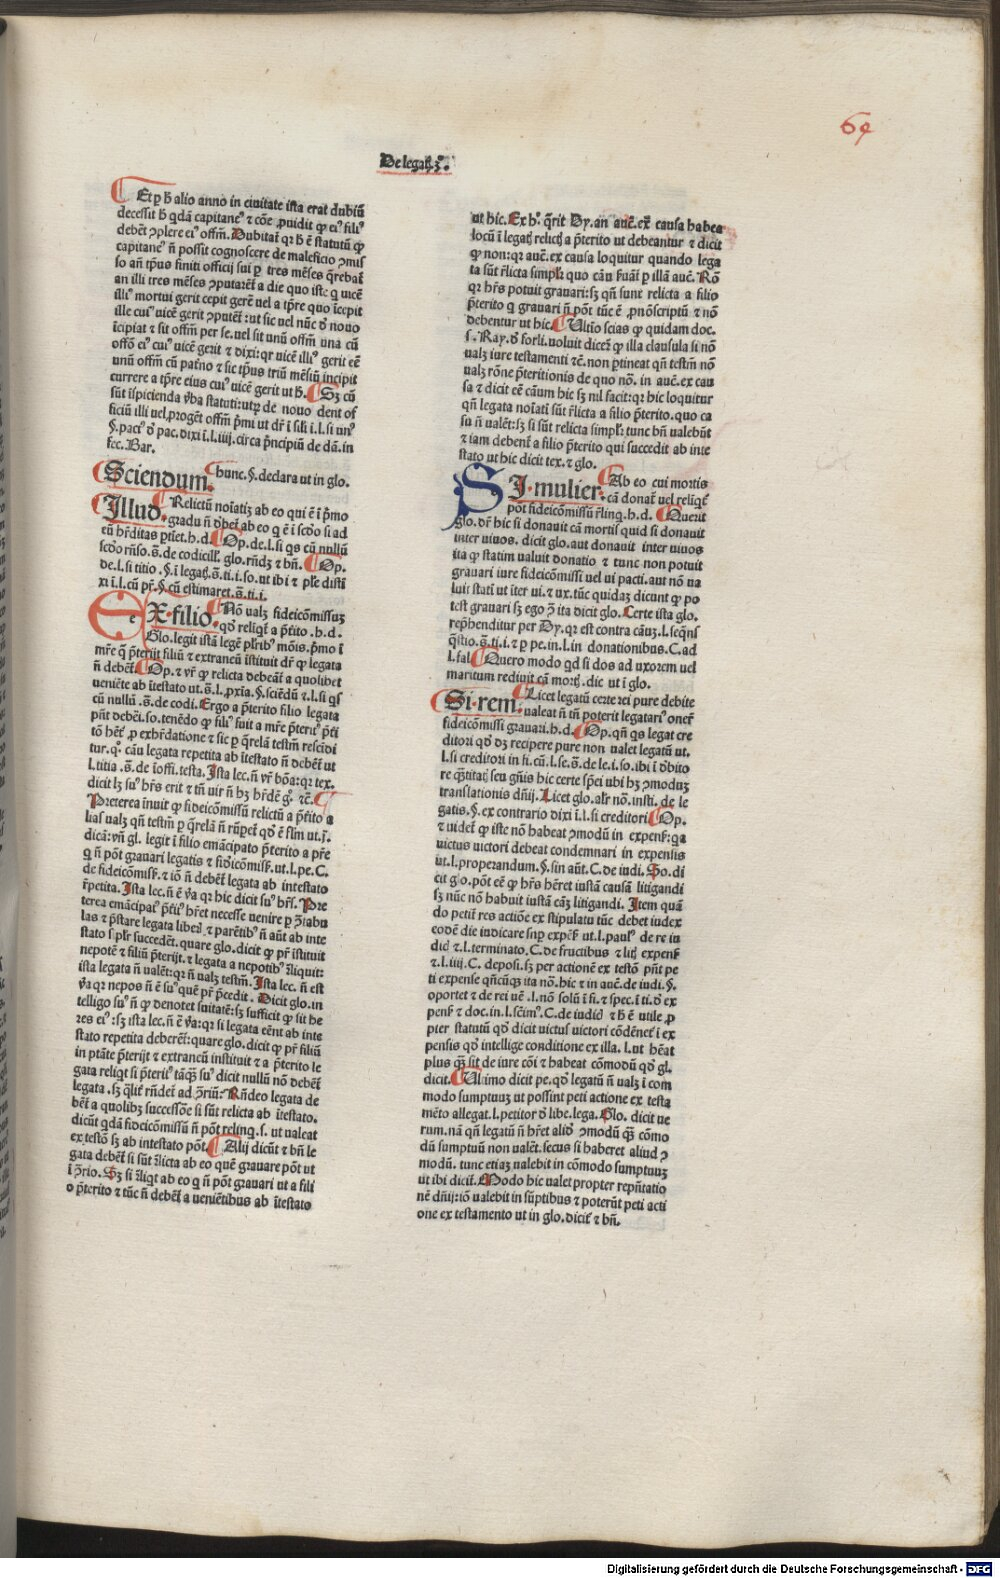 De legatꝭ.ꝫͦ.
64
Et ꝑ ħ alio anno in ciuitate iſta erat dubiū
deceſſit ħ qdā capitane⁹ ⁊ cōe ꝓuidit ꝙ ei⁹ fili⁹
debēt ꝯplere ei⁹ offm̄. Dubitat̄ qꝛ ħ ē ſtatutū ꝙ
capitane⁹ n̄ poſſit cognoſcere de maleficio ꝯmiſ
ſo an̄ tꝑus finiti officij ſui ꝑ tres mēſes q̄rebat̄
an illi tres mēſes ꝯputarēt̄ a die quo iſte q̇ vicē
illi⁹ mortui gerit cepit gerē vel a tꝑre quo īcepit
ille cui⁹ vicē gerit ꝯputet̄: ut ſic vel nūc ꝺ nouo
īcipiat ⁊ ſit offm̄ per ſe. vel ſit unū offm̄ una cū
offō ei⁹ cui⁹ vicē gerit ⁊ dixi: qꝛ vicē illi⁹ gerit eē
unū offm̄ cū patn̄o ⁊ ſic tꝑus triū mēſiū incipit
currere a tꝑre eius cui⁹ vicē gerit ut ħ. Sꝫ cū
ſūt īſpicienda v̄ba ſtatuti: utꝝ de nouo dent of
ficiū illi vel ꝓrogēt offm̄ pͥmi ut dr̄ ī ſili ī.l.ſi un⁹
§.pact⁹ ꝺ pac.dixi ī.l.iiij.circa pͥncipiū de dā.in
fec. Bar.
Sciendum. hunc.§.declara ut in glo.
Illud. Relictū noīatiꝫ ab eo qui ē ī pͥmo
gradu n̄ dꝫbet̄ ab eo q̇ ē ī ſcd̄o ſi ad
eū hr̄ditas ꝑtīet.h.d. Op.de.l.ſi qs cū nullū
ſcd̄o rn̄ſo.s̄.de codicill̄. glo.rn̄dꝫ ⁊ bn̄. Op.
de.l.ſi titio.§.ī legatꝭ.s̄.ti.i.ſo.ut ibi ⁊ ple diſti
xi ī.l.cū pr̄.§.cū eſtimaret.s̄.ti.i.
EX filio. Nō valꝫ fideicōmiſſuꝫ
qd̄ reliqt̄ a p̄t̄ito.h.d.
Glo.legit iſtā legē pl̄rib⁹ mōis.pͥmo ī
mr̄e q̄ p̄terijt filiū ⁊ extraneū īſtituit dr̄ ꝙ legata
n̄ debēt̄. Op.⁊ vr̄ ꝙ relicta debeāt̄ a quolibet
veniēte ab īteſtato ut.s̄.l.pxīa.§.ſciēdū ⁊.l.ſi qs
cū nullū.s̄.de codi. Ergo a p̄terito filio legata
ꝑn̄t debēi.ſo.tenēdo ꝙ fili⁹ fuit a mr̄e p̄terit⁹ p̄t̄i
tō hēt̄ ꝓ exhr̄datione ⁊ ſic ꝑ q̄relā teſtm̄ reſcīdi
tur.qͦ cāu legata repetita ab īteſtato n̄ debēt̄ ut
l.titia.s̄.de īoffi.teſta. Iſta lec.n̄ vr̄ bōa: qꝛ tex.
dicit lꝫ ſu⁹ hr̄s erit ⁊ tn̄ uir n̄ hꝫ hr̄dē gͦ.⁊c̄.
Preterea īnuit ꝙ fideicōmiſſū relictū a p̄t̄ito a
lias valꝫ qn̄ teſtm̄ ꝑ q̄relā n̄ rūpet̄ qd̄ ē fl̄m ut.j.
dicā: vn̄ gl. legit ī filio emācipato p̄terito a pr̄e
q̇ n̄ pōt gravari legatis ⁊ fid̄icōmiſſ̄.ut.l.pe.C.
de fideicōmiſſ̄.⁊ iō n̄ debēt̄ legata ab inteſtato
r̄petita. Iſta lec.n̄ ē v̄a qꝛ hic dicit ſu⁹ hr̄s. Pre
terea emācipat⁹ p̄t̄it⁹ hr̄et neceſſe venire ꝑ ꝯ̄tabu
las ⁊ p̄ſtare legata liber̄ ⁊ parētib⁹ n̄ aūt ab inte
ſtato ſꝫ pl̄r ſuccedēt.quare glo.dicit ꝙ pr̄ īſtituit
nepotē ⁊ filiū p̄terijt.⁊ legata a nepotib⁹ r̄liquit:
iſta legata n̄ valēt: qꝛ n̄ valꝫ teſtm̄. Iſta lec.n̄ eſt
v̄a qꝛ nepos n̄ ē ſu⁹ quē pr̄ p̄cedit. Dicit glo.in
telligo ſu⁹ n̄ ꝙ denotet ſuitatē: ſꝫ ſufficit ꝙ ſit he
res ei⁹: ſꝫ iſta lec.n̄ ē v̄a: qꝛ ſi legata cēnt ab inte
ſtato repetita deberēt: quare glo.dicit ꝙ pr̄ filiū
in ptāte p̄terijt ⁊ extraneū inſtituit ⁊ a p̄terito le
gata reliqt ſi p̄terit⁹ tāqꝫ ſu⁹ dicit nullū nō debēt̄
legata.ſꝫ q̄lit̄ rn̄det̄ ad ꝯ̄riū: Rn̄deo legata de
bēt̄ a quolibꝫ ſucceſſōe ſi ſūt relicta ab īteſtato.
dicūt qdā fideicōmiſſū n̄ pōt relinq̇.ſ.ut valeat
ex teſtō ſꝫ ab inteſtato pōt. Alij dicūt ⁊ bn̄ le
gata debēt̄ ſi ſūt r̄licta ab eo quē gravare pōt ut
ī ꝯ̄rio. Sꝫ ſi r̄liqt ab eo q̇ n̄ pōt gravari ut a fili
o p̄terito ⁊ tūc n̄ debēt̄ a veniētibus ab īteſtato
ut hic. Ex hͦ.q̄rit Dy.an auc̄.ex̄ cauſa habea
locū ī legatꝭ relictꝭ a p̄terito ut debeantur ⁊ dicit
ꝙ non: qꝛ auc̄.ex cauſa loquitur quando lega
ta ſūt r̄licta ſimplr̄ quo cāu ſuāt̄ ꝑ illā auc̄. Rō
qꝛ hr̄s potuit gravari: ſꝫ qn̄ ſunt relicta a filio
p̄terito q̇ gravari n̄ pōt tūc ē ꝓ nō ſcriptū ⁊ nō
debentur ut hic. Ultīo ſcias ꝙ quidam doc.
ſ.Ray.ꝺ forli.voluit dicēt ꝙ illa clauſula ſi nō
valꝫ iure teſtamenti ⁊c̄.non ꝑtineat qn̄ teſtm̄ nō
valꝫ rōne p̄teritionis de quo nō.in auc̄.ex cau
ſa ⁊ dicit eē cāum hic ſꝫ nil facit: qꝛ hic loquitur
qn̄ legata noīati ſūt r̄licta a filio p̄terito.quo ca
ſu n̄ valēt: ſꝫ ſi ſūt relicta ſimplr̄: tunc bn̄ valebūt
⁊ iam debent̄ a filio p̄terito qui ſuccedit ab inte
ſtato ut hic dicit tex.⁊ glo.
SI mulier. Ab eo cui mortis
cā donat̄ vel reliqt̄
pōt fideicōmiſſū r̄linq̇.h.d. Querit
glo.dr̄ hic ſi donavit cā mortis quid ſi donavit
inter vivos. dicit glo.aut donavit inter vivos
ita ꝙ ſtatim valuit donatio ⁊ tunc non potuit
gravari iure fideicōmiſſi vel vi pacti.aut nō va
luit ſtati ut īter vi.⁊ ux.tūc quidaꝫ dicunt ꝙ po
teſt gravari ſꝫ ego ꝯ̄ ita dicit glo. Certe iſta glo.
rep̄henditur per Dy.qꝛ eſt contra cāuꝫ.l.ſeqn̄s
q̄ſtio.s̄.ti.i.⁊ ꝑ pe.in.l.in donationibus.C.ad
l.fal. Quero modo qd ſi dos ad uxorem vel
maritum redivit cā mortꝭ.dic ut ī glo.
Si rem. Licet legatū certe rei pure debite
valeat n̄ tn̄ poterit legatari⁹ oner̄
fideicōmiſſi gravari.h.d. Op.qn̄ qs legat cre
ditori qd̄ dꝫ recipere pure non valet legatū ut.
l.ſi creditori in fi.cū.l.ſe.s̄.de le.i.ſo.ibi ī dꝫbito
re q̄ntitatꝭ ſeu gn̄is hic certe ſpēi ubi hꝫ ꝯmoduꝫ
tranſlationis dn̄ij. Licet glo.alr̄ nō.inſti.de le
gatis.§.ex contrario dixi ī.l.ſi creditori. Op.
⁊ videt̄ ꝙ iſte nō habeat ꝯmodū in expenſ̄: qa
victus victori debeat condemnari in expenſis
ut.l.properandum.§.ſin aūt.C.de iudi. So.di
cit glo.pōt eē ꝙ hr̄s hēret iuſtā cauſā litigandi
ſꝫ nūc nō habuit iuſtā cāꝫ litigandi. Item quā
do petit̄ res actiōe ex ſtipulatu tūc debet iudex
eodē die iudicare ſuꝑ expēſ̄ ut.l.paul⁹.de re iu
did ⁊.l.terminato.C.de fructibus ⁊ litꝭ expenſ̄
⁊.l.iiij.C.depoſi.ſꝫ per actionē ex teſtō pn̄t pe
ti expenſe qn̄cūqꝫ ita nō.hic ⁊ in auc̄.de iudi.§.
oportet ⁊ de rei vē.l.nō ſolū ī fi.⁊ ſpec.ī ti.ꝺ ex
penſ̄ ⁊ doc.in.l.ſcim⁹.C.de iudid ⁊ ħ ē utile ꝓ
pter ſtatutū qd̄ dicit victus victori cōdēnet̄ ī ex
penſis qd̄ intellige conditione ex illa.l.ut hēat
plus qꝫ ſit de iure cōi ⁊ habeat cōmodū qd̄ gl.
dicit. Ultimo dicit pe.qd̄ legatū n̄ valꝫ ī com
modo ſumptuuꝫ ut poſſint peti actione ex teſta
mēto allegat.l.petitor ꝺ libe.lega. Glo.dicit ve
rum.nā qn̄ legatū n̄ hr̄et aliō ꝯmodū qꝫ cōmo
dū ſumptuū non valēt.ſecus ſi haberet aliud ꝯ
modū. tunc etiaꝫ valebit in cōmodo ſumptuuꝫ
ut ibi dicit̄. Modo hic valet propter repn̄tatio
nē dn̄ij: iō valebit in ſūptibus ⁊ poterūt peti acti
one ex teſtamento ut in glo.dicit̄ ⁊ bn̄.
Digitalisierung gefördert durch die Deutsche Forschungsgemeinschaft - DFG